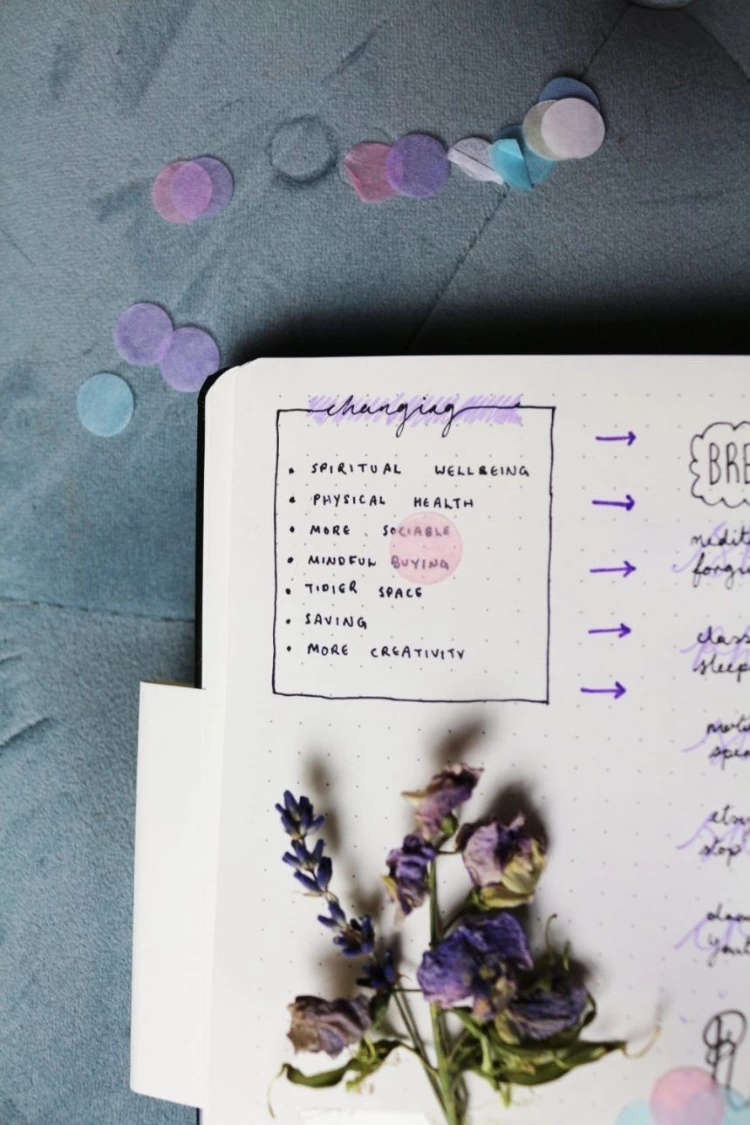 changing
• SPIRITUAL WELLBEING
• PHYSICAL HEALTH
• MORE SOCIABLE
• MINDFUL BUYING
• TIDIER SPACE
• SAVING
• MORE CREATIVITY
BRE
medit
forgi
class
sleep
spen
etsy
stop